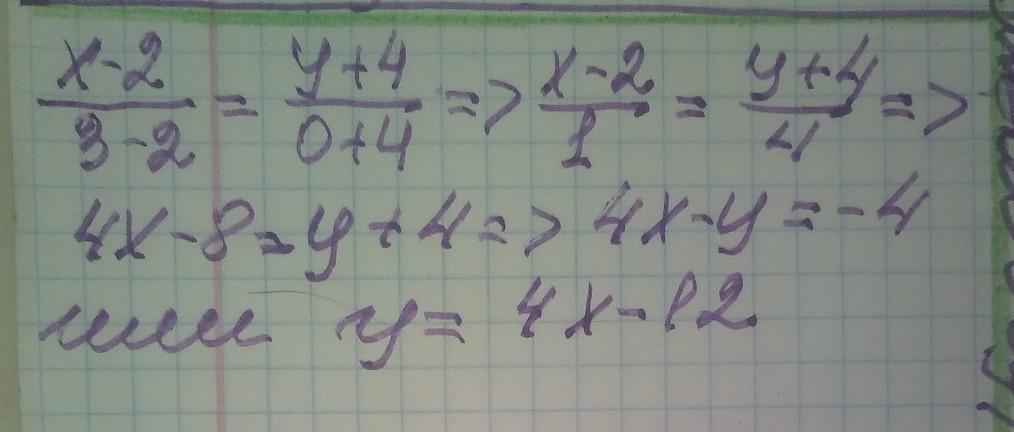 x-2/3-2 = y+4/0+4 => x-2/1 = y+4/4 =>
4x-8=y+4=> 4x-y=-4
или y= 4x-12